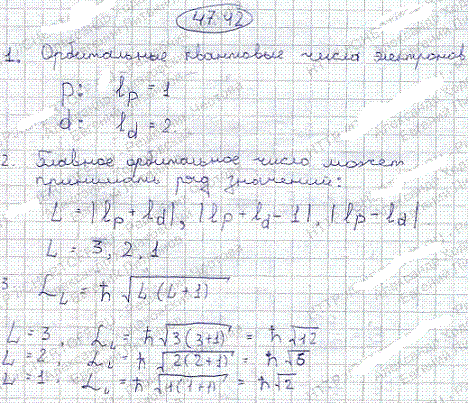 47.42
1. Орбитальные квантовые числа электронов
p: l_p = 1
d: l_d = 2
2. Главное орбитальное число может
принимать ряд значений:
L = |l_p + l_d|, |l_p - l_d - 1|, |l_p - l_d|
L = 3, 2, 1
3 L_L = ħ √L(L+1)
L = 3, L_L = ħ √3(3+1) = ħ √12
L = 2, L_L = ħ √2(2+1) = ħ √6
L = 1, L_L = ħ √1(1+1) = ħ √2